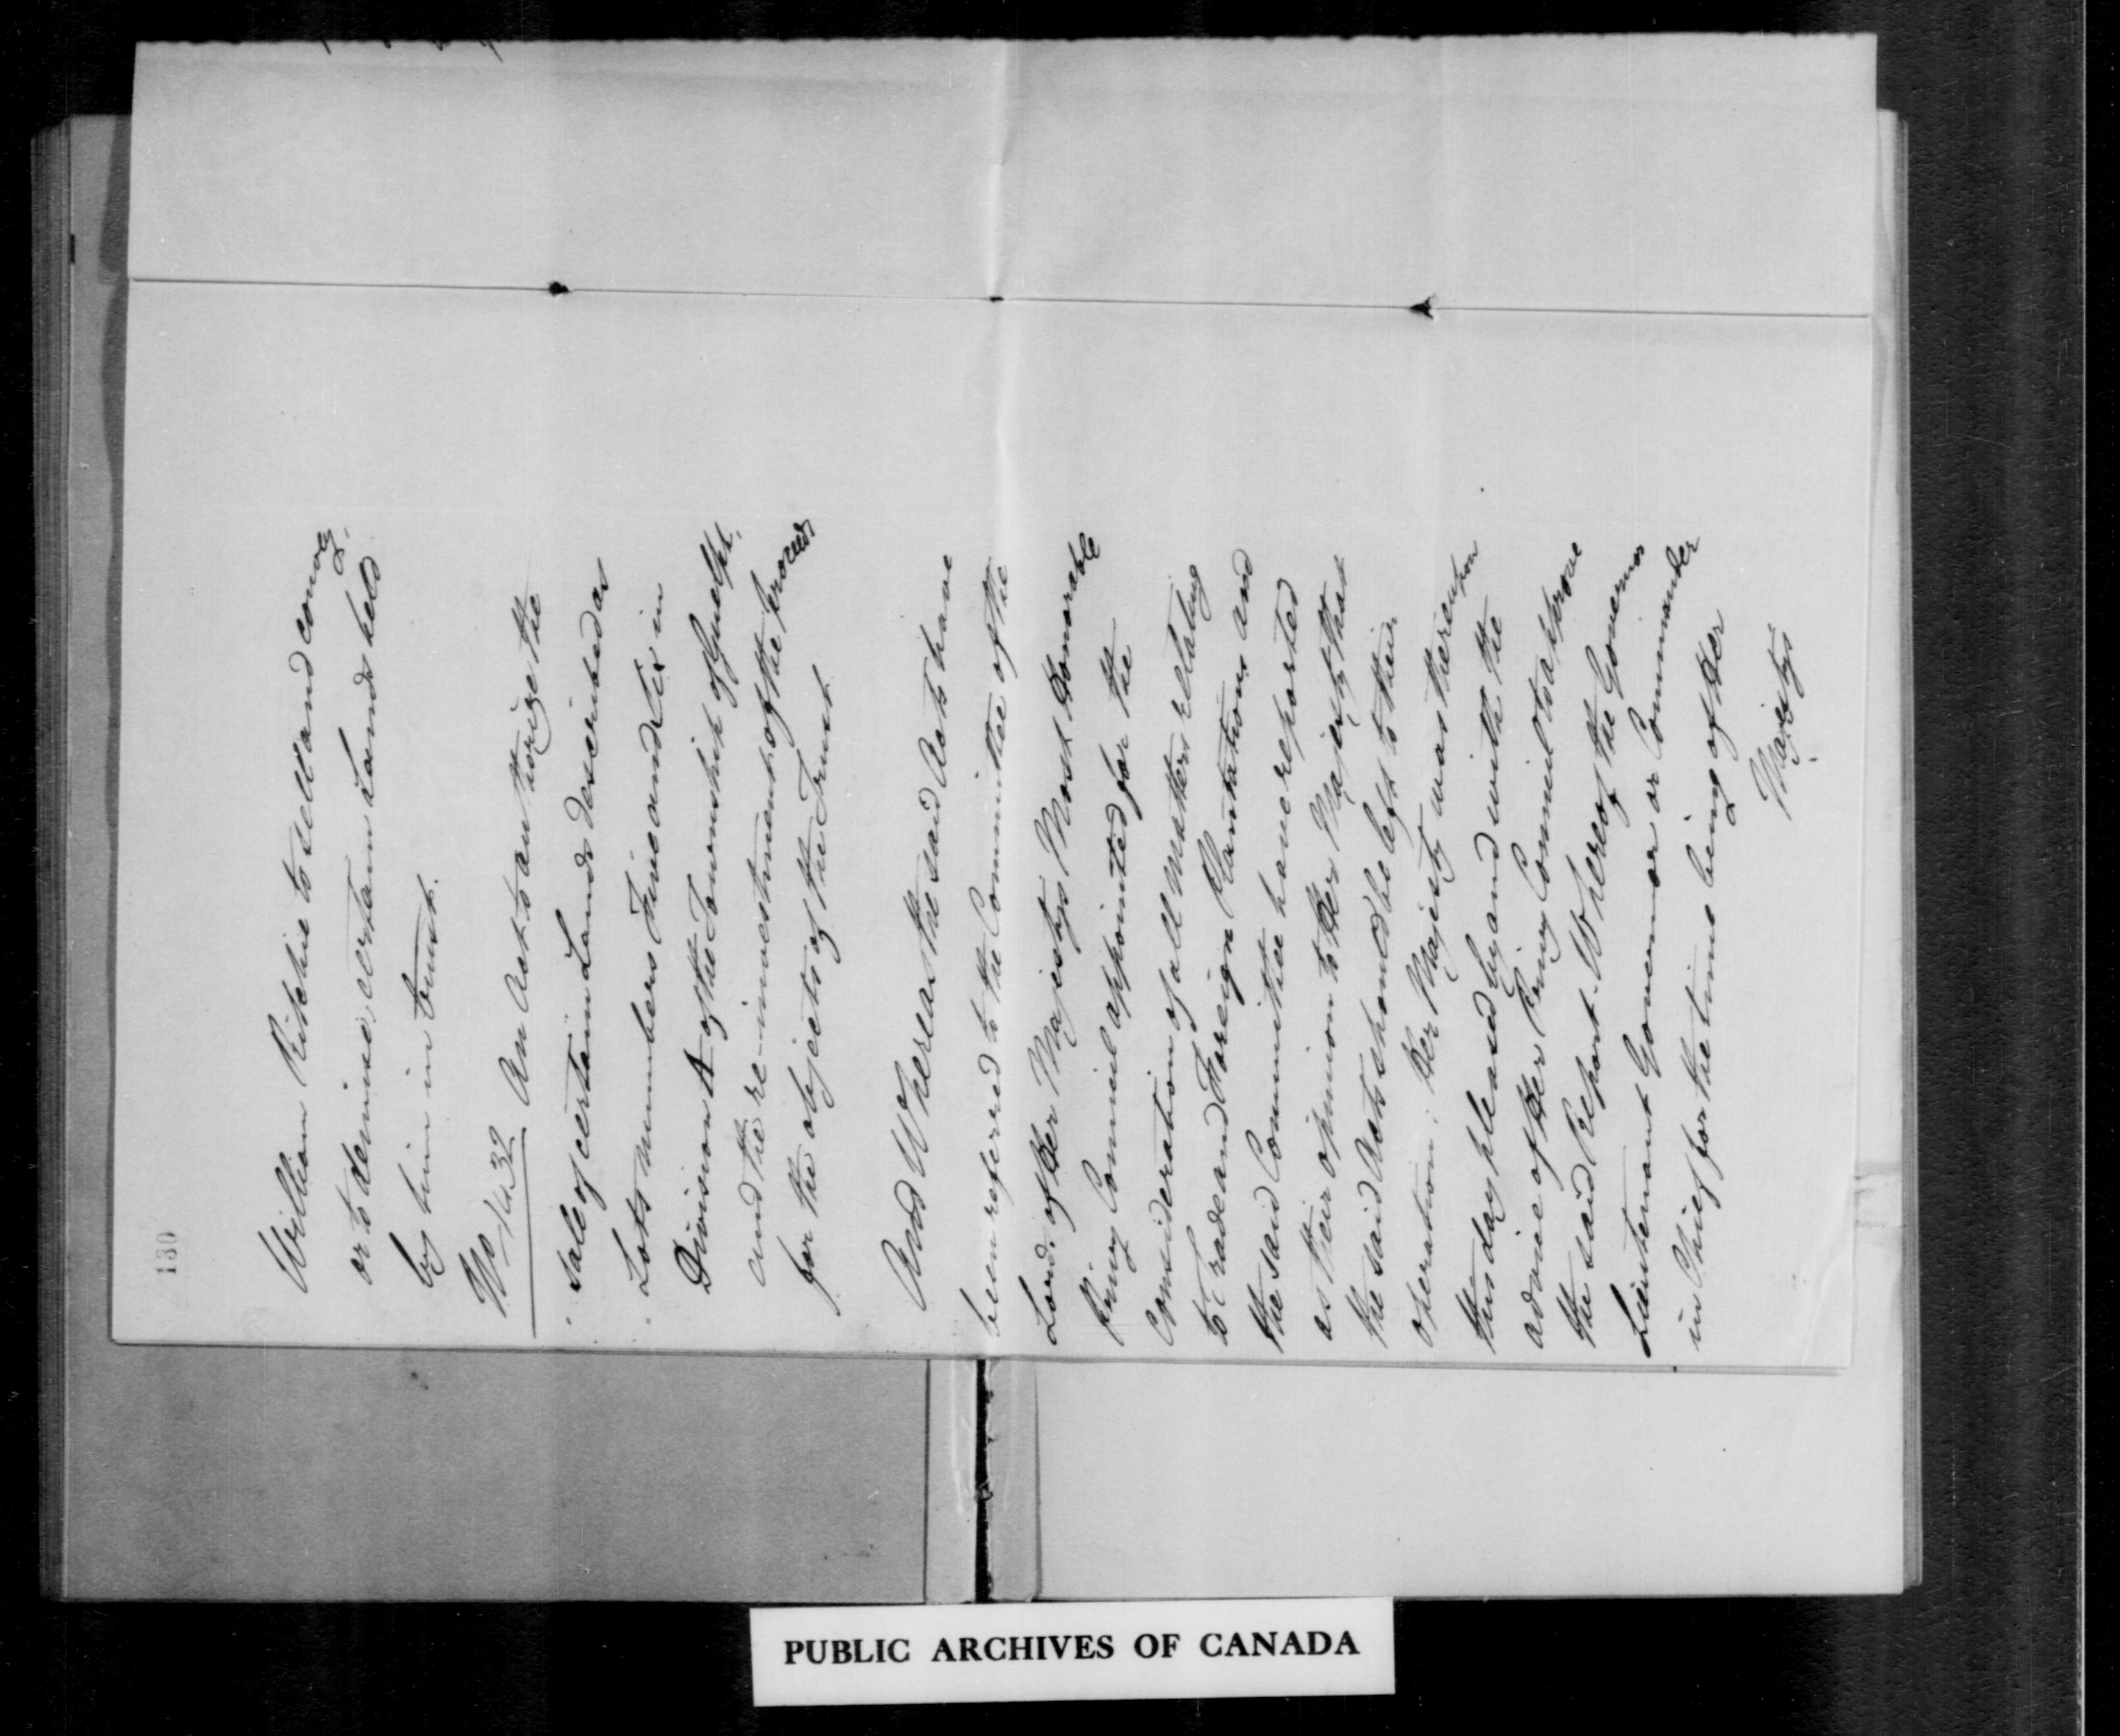 180
William Ritchie to sell and convey,
or to demise, certain Lands held
by him in trust.
No 1432 An Act to authorize the
sale of certain Lands described as
Lots numbers Five and Six in
Division A of the Township of Guelph,
and the re-investment of the proceeds
for the objects of the Trust.
And Whereas the said Acts have
been referred to the Committee of the
Lords of Her Majesty's Most Honorable
Privy Council appointed for the
Consideration of all Matters relating
to Trade and Foreign Plantations and
the said Committee have reported
as their opinion to Her Majesty that
the said Acts should be left to their
operation. Her Majesty was thereupon
this day pleased by and with the
advice of Her Privy Council to approve
the said Report. Whereof the Governor
Lieutenant Governor or Commander
in Chief for the time being of Her
Majesty's
PUBLIC ARCHIVES OF CANADA